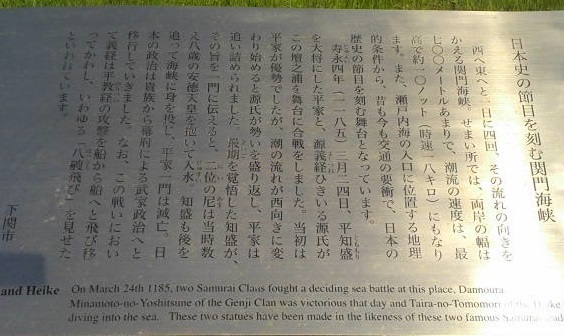 日本史の節目を刻む関門海峡
西へ東へと一日に四回、その流れの向きを
かえる関門海峡。せまい所では、両岸の幅は
七〇〇メートルあまりで、潮流の速度は、最
高で約一〇ノット(時速一八キロ)にもなり
ます。また、瀬戸内海の入口に位置する地理
的条件から、昔も今も交通の要衝で、日本の
歴史の節目を刻む舞台となっています。
寿永四年(一一八五)三月二四日、平知盛
を大将にした平家と、源義経ひきいる源氏が
この壇之浦を舞台に合戦をしました。当初は
平家が優勢でしたが、潮の流れが西向きに変
わり始めると源氏が勢いを盛り返し、平家は
追い詰められました。最期を覚悟した知盛が、
その旨を一門に伝えると、二位の尼は当時数
え八歳の安徳天皇を抱いて入水、知盛も後を
追って海峡に身を投じ、平家一門は滅亡。日
本の政治は貴族から幕府による武家政治へと
移行していきました。なお、この戦いにおい
て義経は平教経の攻撃を船から船へと飛び移
ってかわし、いわゆる「八艘飛び」を見せた
といわれています。
下関市
and Heike
On March 24th 1185, two Samurai Clans fought a deciding sea battle at this place, Dannoura
Minamoto-no-Yoshitsune of the Genji Clan was victorious that day and Taira-no-Tomomori of the Heike
diving into the sea. These two statues have been made in the likeness of these two famous Samurai